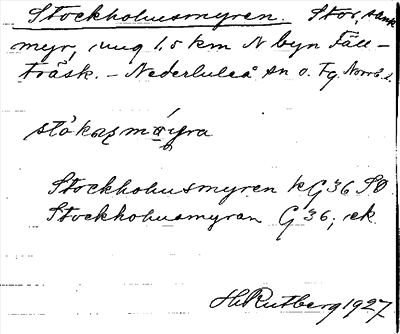 Stockholmsmyren. Stor, sank
myr, ung 1,5 km N byn Fäll-
träsk. – Nederluleå sn o. Tg. Norrb. l.
Stockholmsmyren kG36 SO
Stockholmsmyran G36; ek.
H. Rutberg 1927